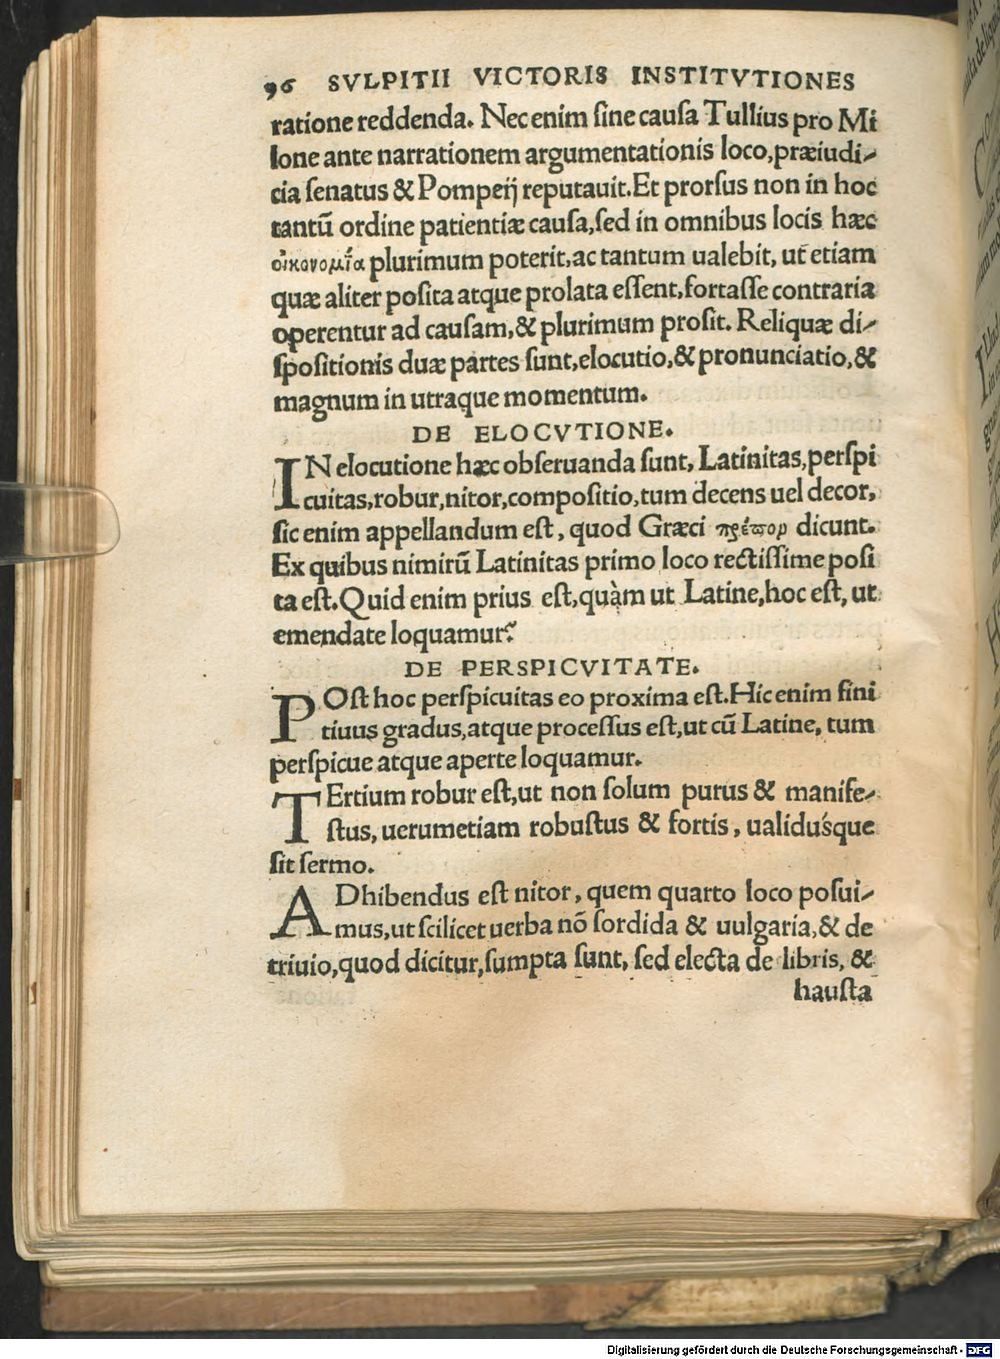 96 SVLPITII VICTORIS INSTITVTIONES
ratione reddenda. Nec enim ſine cauſa Tullius pro Mi
lone ante narrationem argumentationis loco, præiudi-
cia ſenatus & Pompeij reputauit. Et prorſus non in hoc
tantũ ordine patientiæ cauſa, ſed in omnibus locis hæc
οἰκονομία plurimum poterit, ac tantum ualebit, ut etiam
quæ aliter poſita atque prolata eſſent, fortaſſe contraria
operentur ad cauſam, & plurimum proſit. Reliquæ di-
ſpoſitionis duæ partes ſunt, elocutio, & pronunciatio, &
magnum in utraque momentum.
DE ELOCVTIONE.
IN elocutione hæc obſeruanda ſunt, Latinitas, perſpi
cuitas, robur, nitor, compoſitio, tum decens uel decor,
ſic enim appellandum eſt, quod Græci πρέπον dicunt.
Ex quibus nimirũ Latinitas primo loco rectiſſime poſi
ta eſt. Quid enim prius eſt, quàm ut Latine, hoc eſt, ut
emendate loquamur?
DE PERSPICVITATE.
POſt hoc perſpicuitas eo proxima eſt. Hic enim fini
tiuus gradus, atque proceſſus eſt, ut cũ Latine, tum
perſpicue atque aperte loquamur.
TErtium robur eſt, ut non ſolum purus & manife-
ſtus, uerumetiam robuſtus & fortis, ualidusque
ſit ſermo.
ADhibendus eſt nitor, quem quarto loco poſui-
mus, ut ſcilicet uerba nõ ſordida & uulgaria, & de
triuio, quod dicitur, ſumpta ſunt, ſed electa de libris, &
hauſta
Digitalisierung gefördert durch die Deutsche Forschungsgemeinschaft - DFG